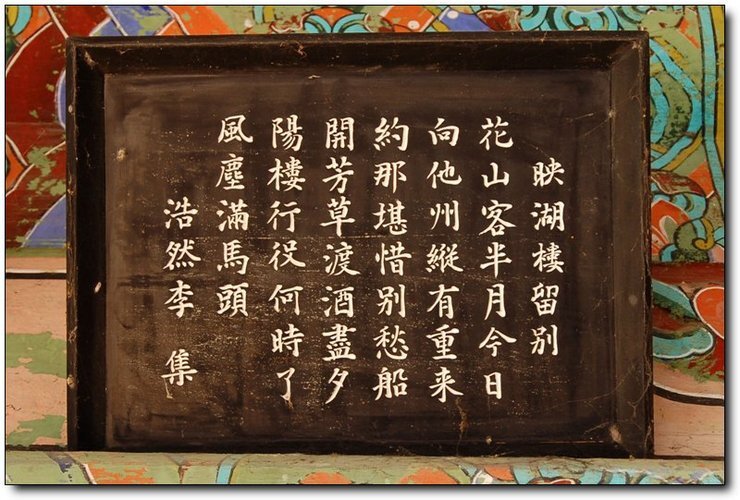 映湖樓留別
花山客半月今日
向他州縱有重来
約那堪惜別愁船
開芳草渡酒盡夕
陽樓行役何時了
風塵滿馬頭
浩然李集